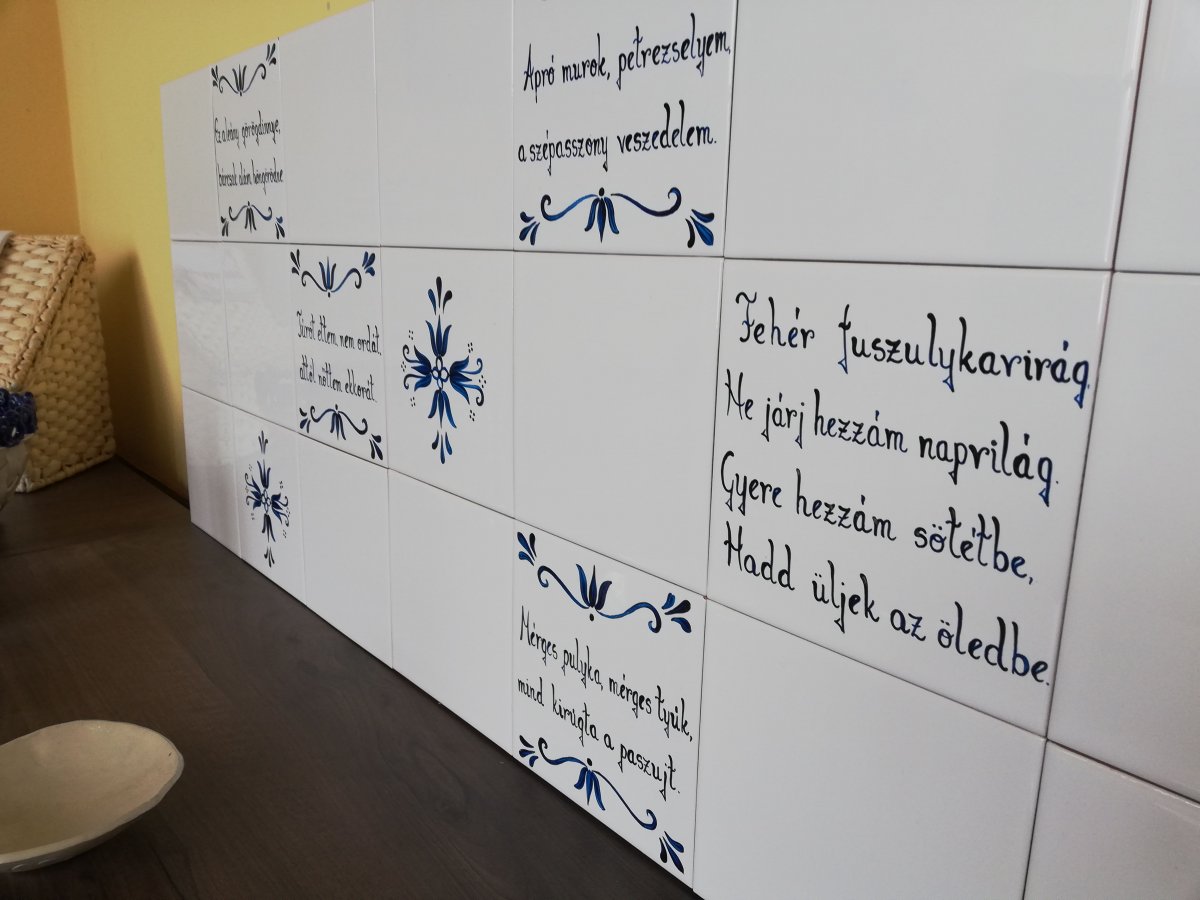 Ez a leány görögdinnye,
bárcsak alám hengeredne
Apró murok, petrezselyem,
a szépasszony veszedelem.
Túrót ettem, nem ordát,
attól nőttem ekkorát.
Fehér fuszulykavirág,
Ne járj hezzám naprilág.
Gyere hezzám sötétbe,
Hadd üljek az öledbe.
Mérges pulyka, mérges tyúk,
mind kirúgta a paszujt.